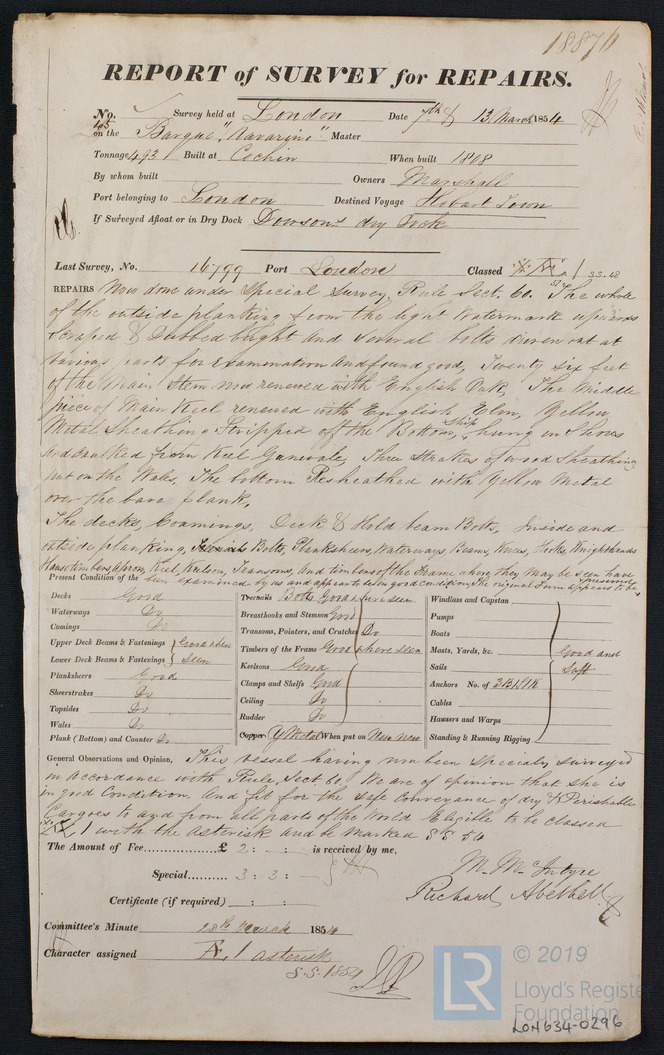 18876
REPORT of SURVEY for REPAIRS.
No. 105 Survey held at London Date 7th & 13 March 1854
on the Barque "Navarino" Master
Tonnage 493 Built at Cochin When built 1808
By whom built Owners Marshall
Port belonging to London Destined Voyage Hobart Town
If Surveyed Afloat or in Dry Dock Dowsons dry Dock
Last Survey, No. 16799 Port London Classed 1 S.S. 48
REPAIRS Now done under Special Survey, Rule Sect. 60. The whole
of the outside planking from the light Watermark upwards
Scraped & Dubbed bright and Several bolts driven out at
various parts for examination and found good, Twenty Six feet
of the Main Stem now renewed with English Oak, The Middle
piece of Main Keel renewed with English Elm, Yellow
Metal Sheathing Stripped off the Bottom, Ship hung in Shores
and caulked from Keel Gunwale, Three Strakes of wood Sheathing
put on the Wales. The bottom Resheathed with Yellow Metal
over the bare plank,
The decks, Coamings, Deck & Hold beam Bolts, Inside and
outside planking, Bolts, Planksheers, Waterways, Beams, Knees, Hooks, Knightheads
Hawsetimbers, Apron, Keel, Keelson, Transoms, and timbers of the Frame where they may be seen have
been examined by us and appears to be in good condition, The original Form appears to be preserved
Present Condition of the
Decks Good
Waterways Do
Comings Do
Upper Deck Beams & Fastenings Good where
Lower Deck Beams & Fastenings seen
Planksheers Good
Sheerstrakes Do
Topsides Do
Wales Do
Plank (Bottom) and Counter Do
Treenails Bolts Good where seen
Breasthooks and Stemson Good
Transoms, Pointers, and Crutches Do
Timbers of the Frame Good where seen
Keelsons Good
Clamps and Shelfs Good
Ceiling Do
Rudder Do
Copper Y Metal When put on Now new
Windlass and Capstan
Pumps
Boats
Masts, Yards, &c. Good and
Sails Suft
Anchors No. of 3 B 1 S 1 K
Cables
Hawsers and Warps
Standing & Running Rigging
General Observations and Opinion, This vessel having now been Specialy Surveyed
in accordance with Rule, Sect. 60 We are of opinion that she is
in good Condition and fit for the Safe Conveyance of dry & Perishable
Cargoes to and from all parts of the World Eligible to be classed
1 with the asterisk and be marked S S 54
The Amount of Fee £ 2 : - : - is received by me,
Special 3 : 3 : -
M. McIntyre
Richard Abethell
Certificate (if required) : :
Committee's Minute 28th March 1854
Character assigned 1 asterisk
S.S. 1854
© 2019
LR
Lloyd's Register
Foundation
LON634-0296